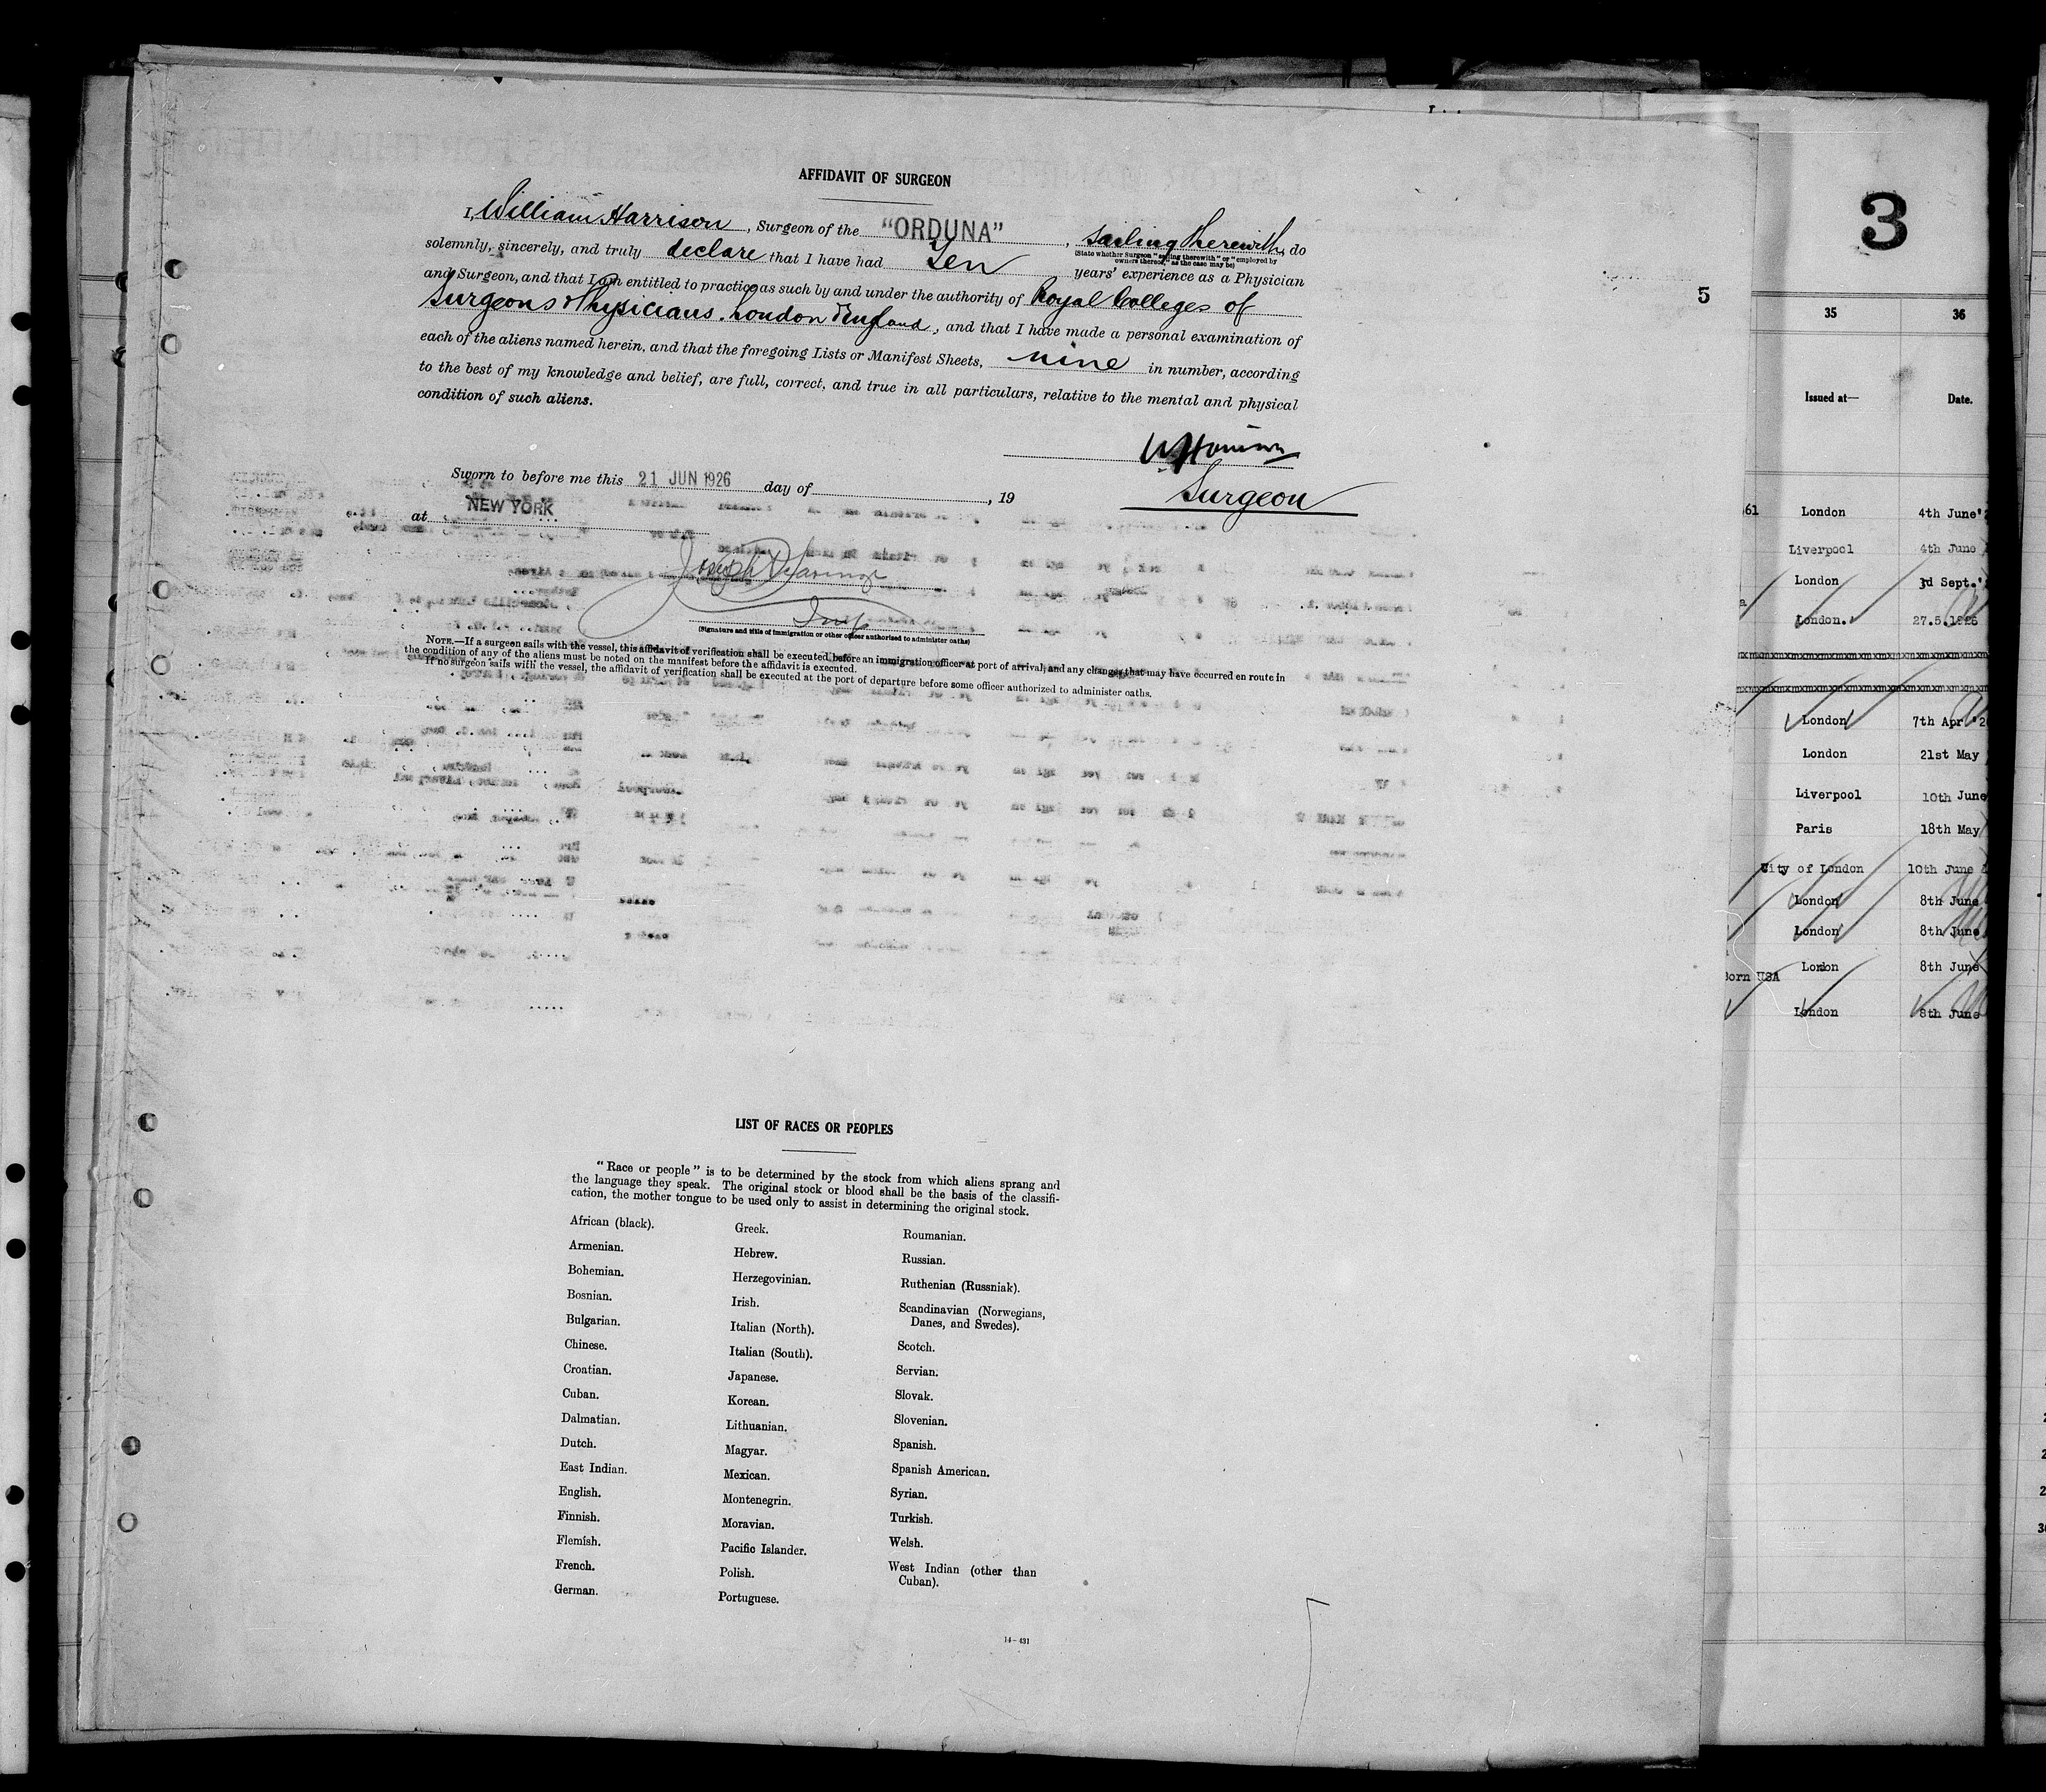 AFFIDAVIT OF SURGEON
I, William Harrison, Surgeon of the "ORDUNA", sailing therewith, do
(State whether Surgeon "sailing therewith" or "employed by
owners thereof," as the case may be)
solemnly, sincerely, and truly declare that I have had Ten years' experience as a Physician
and Surgeon, and that I am entitled to practice as such by and under the authority of Royal Colleges of
Surgeons & Physicians. London England, and that I have made a personal examination of
each of the aliens named herein, and that the foregoing Lists or Manifest Sheets, nine in number, according
to the best of my knowledge and belief, are full, correct, and true in all particulars, relative to the mental and physical
condition of such aliens.
W Harrison
Surgeon
Sworn to before me this 21 JUN 1926 day of , 19
at NEW YORK
Joseph
(Signature and title of immigration or other officer authorized to administer oaths)
NOTE.—If a surgeon sails with the vessel, this affidavit of verification shall be executed before an immigration officer at port of arrival, and any changes that may have occurred en route in
the condition of any of the aliens must be noted on the manifest before the affidavit is executed.
If no surgeon sails with the vessel, the affidavit of verification shall be executed at the port of departure before some officer authorized to administer oaths.
LIST OF RACES OR PEOPLES
"Race or people" is to be determined by the stock from which aliens sprang and
the language they speak. The original stock or blood shall be the basis of the classifi-
cation, the mother tongue to be used only to assist in determining the original stock.
African (black).
Armenian.
Bohemian.
Bosnian.
Bulgarian.
Chinese.
Croatian.
Cuban.
Dalmatian.
Dutch.
East Indian.
English.
Finnish.
Flemish.
French.
German.
Greek.
Hebrew.
Herzegovinian.
Irish.
Italian (North).
Italian (South).
Japanese.
Korean.
Lithuanian.
Magyar.
Mexican.
Montenegrin.
Moravian.
Pacific Islander.
Polish.
Portuguese.
Roumanian.
Russian.
Ruthenian (Russniak).
Scandinavian (Norwegians,
Danes, and Swedes).
Scotch.
Servian.
Slovak.
Slovenian.
Spanish.
Spanish American.
Syrian.
Turkish.
Welsh.
West Indian (other than
Cuban).
14-431
5
3
35 36
Issued at— Date.
61 London 4th June'
Liverpool 4th June
London 3rd Sept.'
London. 27.5.1926
London 7th Apr '2
London 21st May
Liverpool 10th June
Paris 18th May
City of London 10th June
London 8th June
London 8th June
London 8th June
Born USA
London 8th June